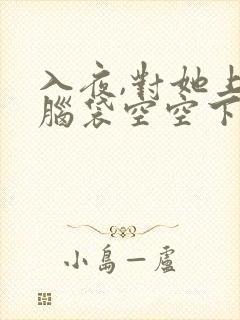 入夜,對她上
腦袋空空下
小島一盧